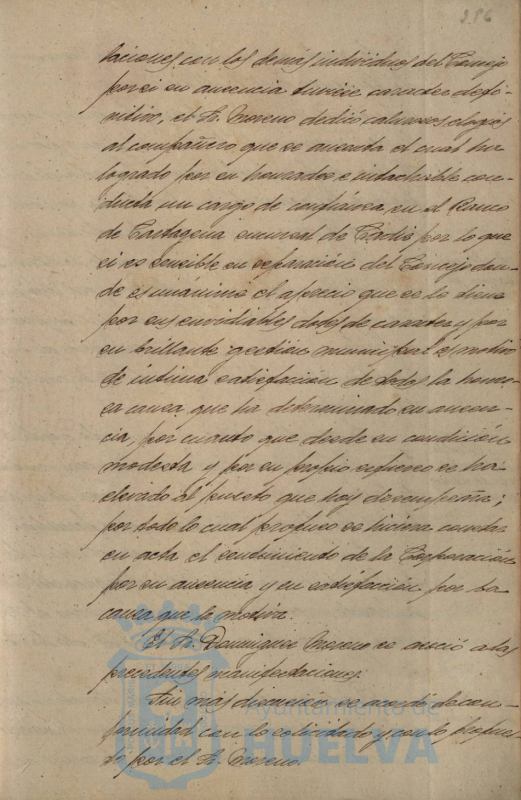 256
laciones con los demás individuos del Concejo
por si su ausencia tuviese caracter defi-
nitivo, el Sr. Moreno dedicó calurosos elogios
al compañero que se ausenta el cual ha
logrado por su honradez e intachable con-
ducta un cargo de confianza en el Banco
de Cartagena sucursal de Cadiz por lo que
si es sensible su separación del Concejo don-
de es unanime el aprecio que se le tiene
por sus envidiables dotes de caracter y por
su brillante gestión municipal es motivo
de intima satisfacion de todos la honro-
sa causa que ha determinado su ausen-
cia, por cuanto que desde su condición
modesta y por su propio esfuerzo se ha
elevado al puesto que hoy desempeña;
por todo lo cual propuso se hiciera constar
en acta el sentimiento de la Corporación
por su ausencia y su satisfación por la
causa que la motiva.
El Sr. Dominguez Moreno se asoció a las
precedentes manifestaciones.
Sin mas discusión se acordó de con-
formidad con lo solicitado y con lo propues-
to por el Sr. Moreno.
Ayuntamiento de
HUELVA